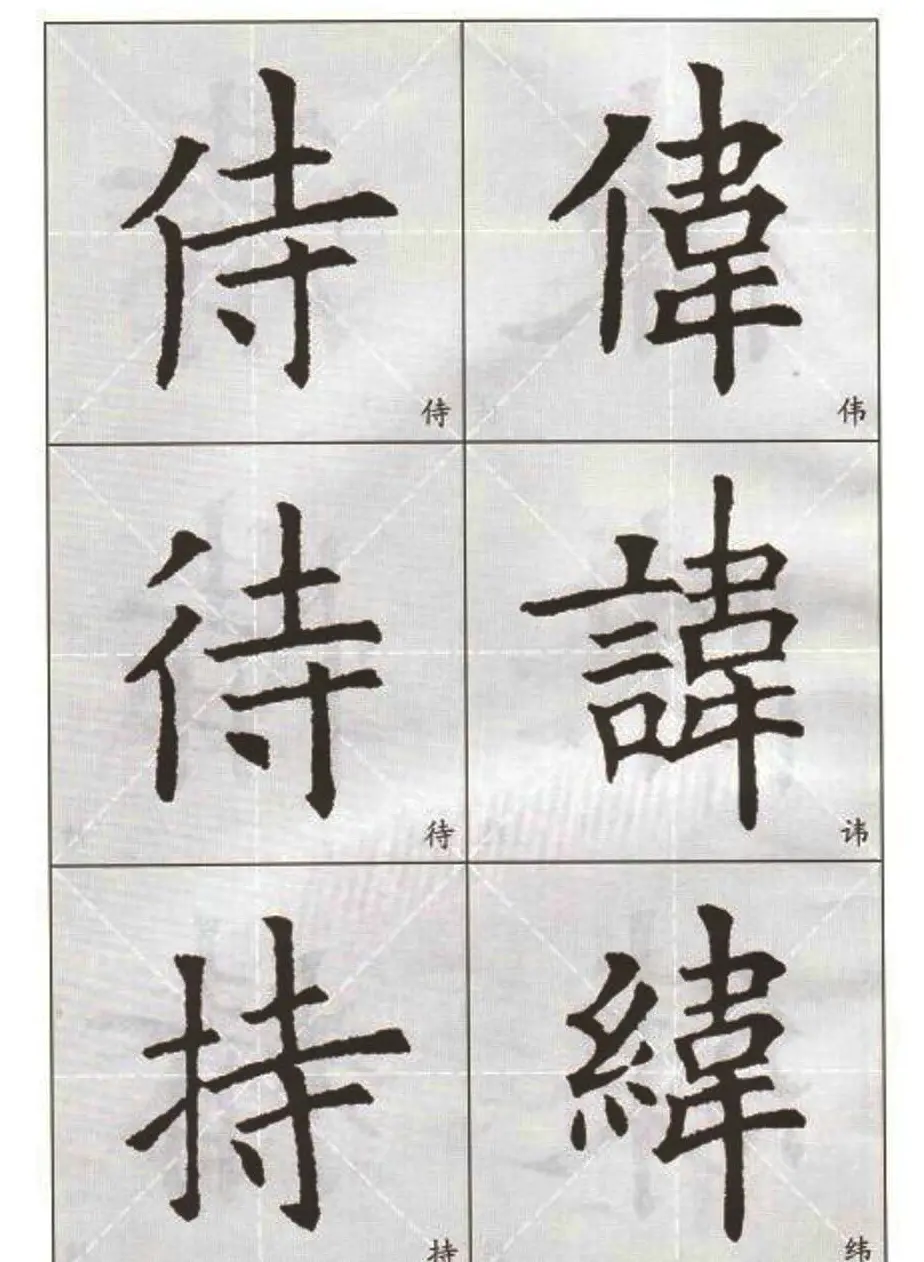 侍 偉
侍 伟
待 諱
待 讳
持 緯
持 纬